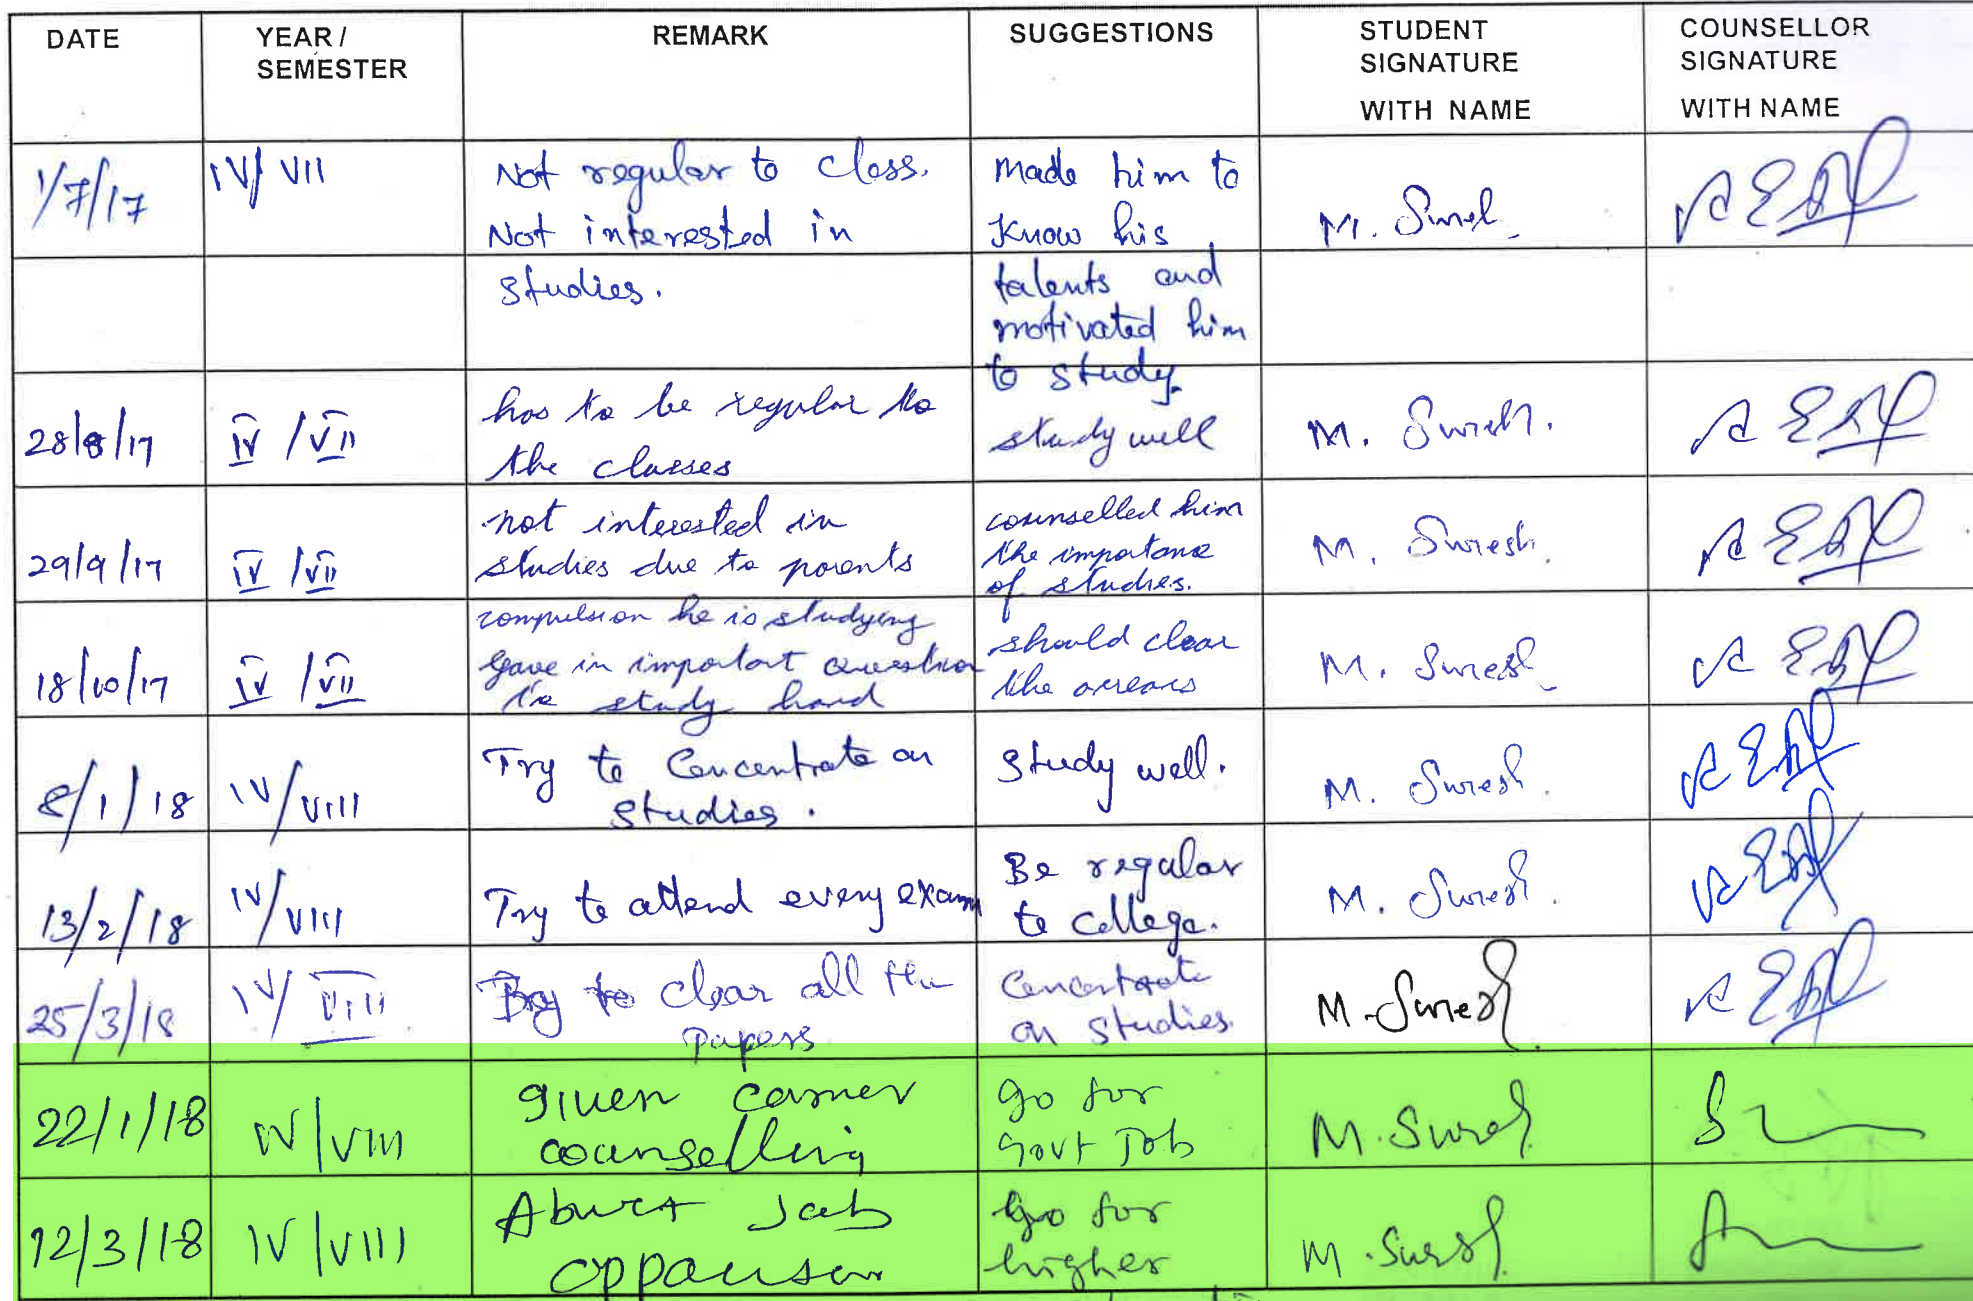 DATE
YEAR /
SEMESTER
REMARK
SUGGESTIONS
STUDENT
SIGNATURE
WITH NAME
COUNSELLOR
SIGNATURE
WITH NAME
1/7/17
IV/ VII
Not regular to class.
Not interested in
studies.
made him to
Know his
talents and
motivated him
to study.
M. Suresh
28/8/17
IV /VII
has to be regular to
the classes
study well
M. Suresh.
29/9/17
IV /VII
not interested in
studies due to parents
compulsion he is studying
counselled him
the importance
of studies.
M. Suresh.
18/10/17
IV /VII
gave in important question
to study hard
should clear
the arrears
M. Suresh
8/1/18
IV/VIII
Try to Concentrate on
studies.
study well.
M. Suresh.
13/2/18
IV/VIII
Try to attend every exam
Be regular
to college.
M. Suresh.
25/3/18
IV/ VIII
Try to clear all the
papers
Concentrate
on studies.
M. Suresh
22/1/18
IV/VIII
given carrier
counselling
go for
Govt Job
M. Suresh
12/3/18
IV/VIII
About Job
go for
higher
M. Suresh